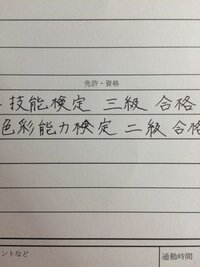 免許・資格
技能検定 三級 合格
色彩能力検定 二級 合格
ントなど
通勤時間